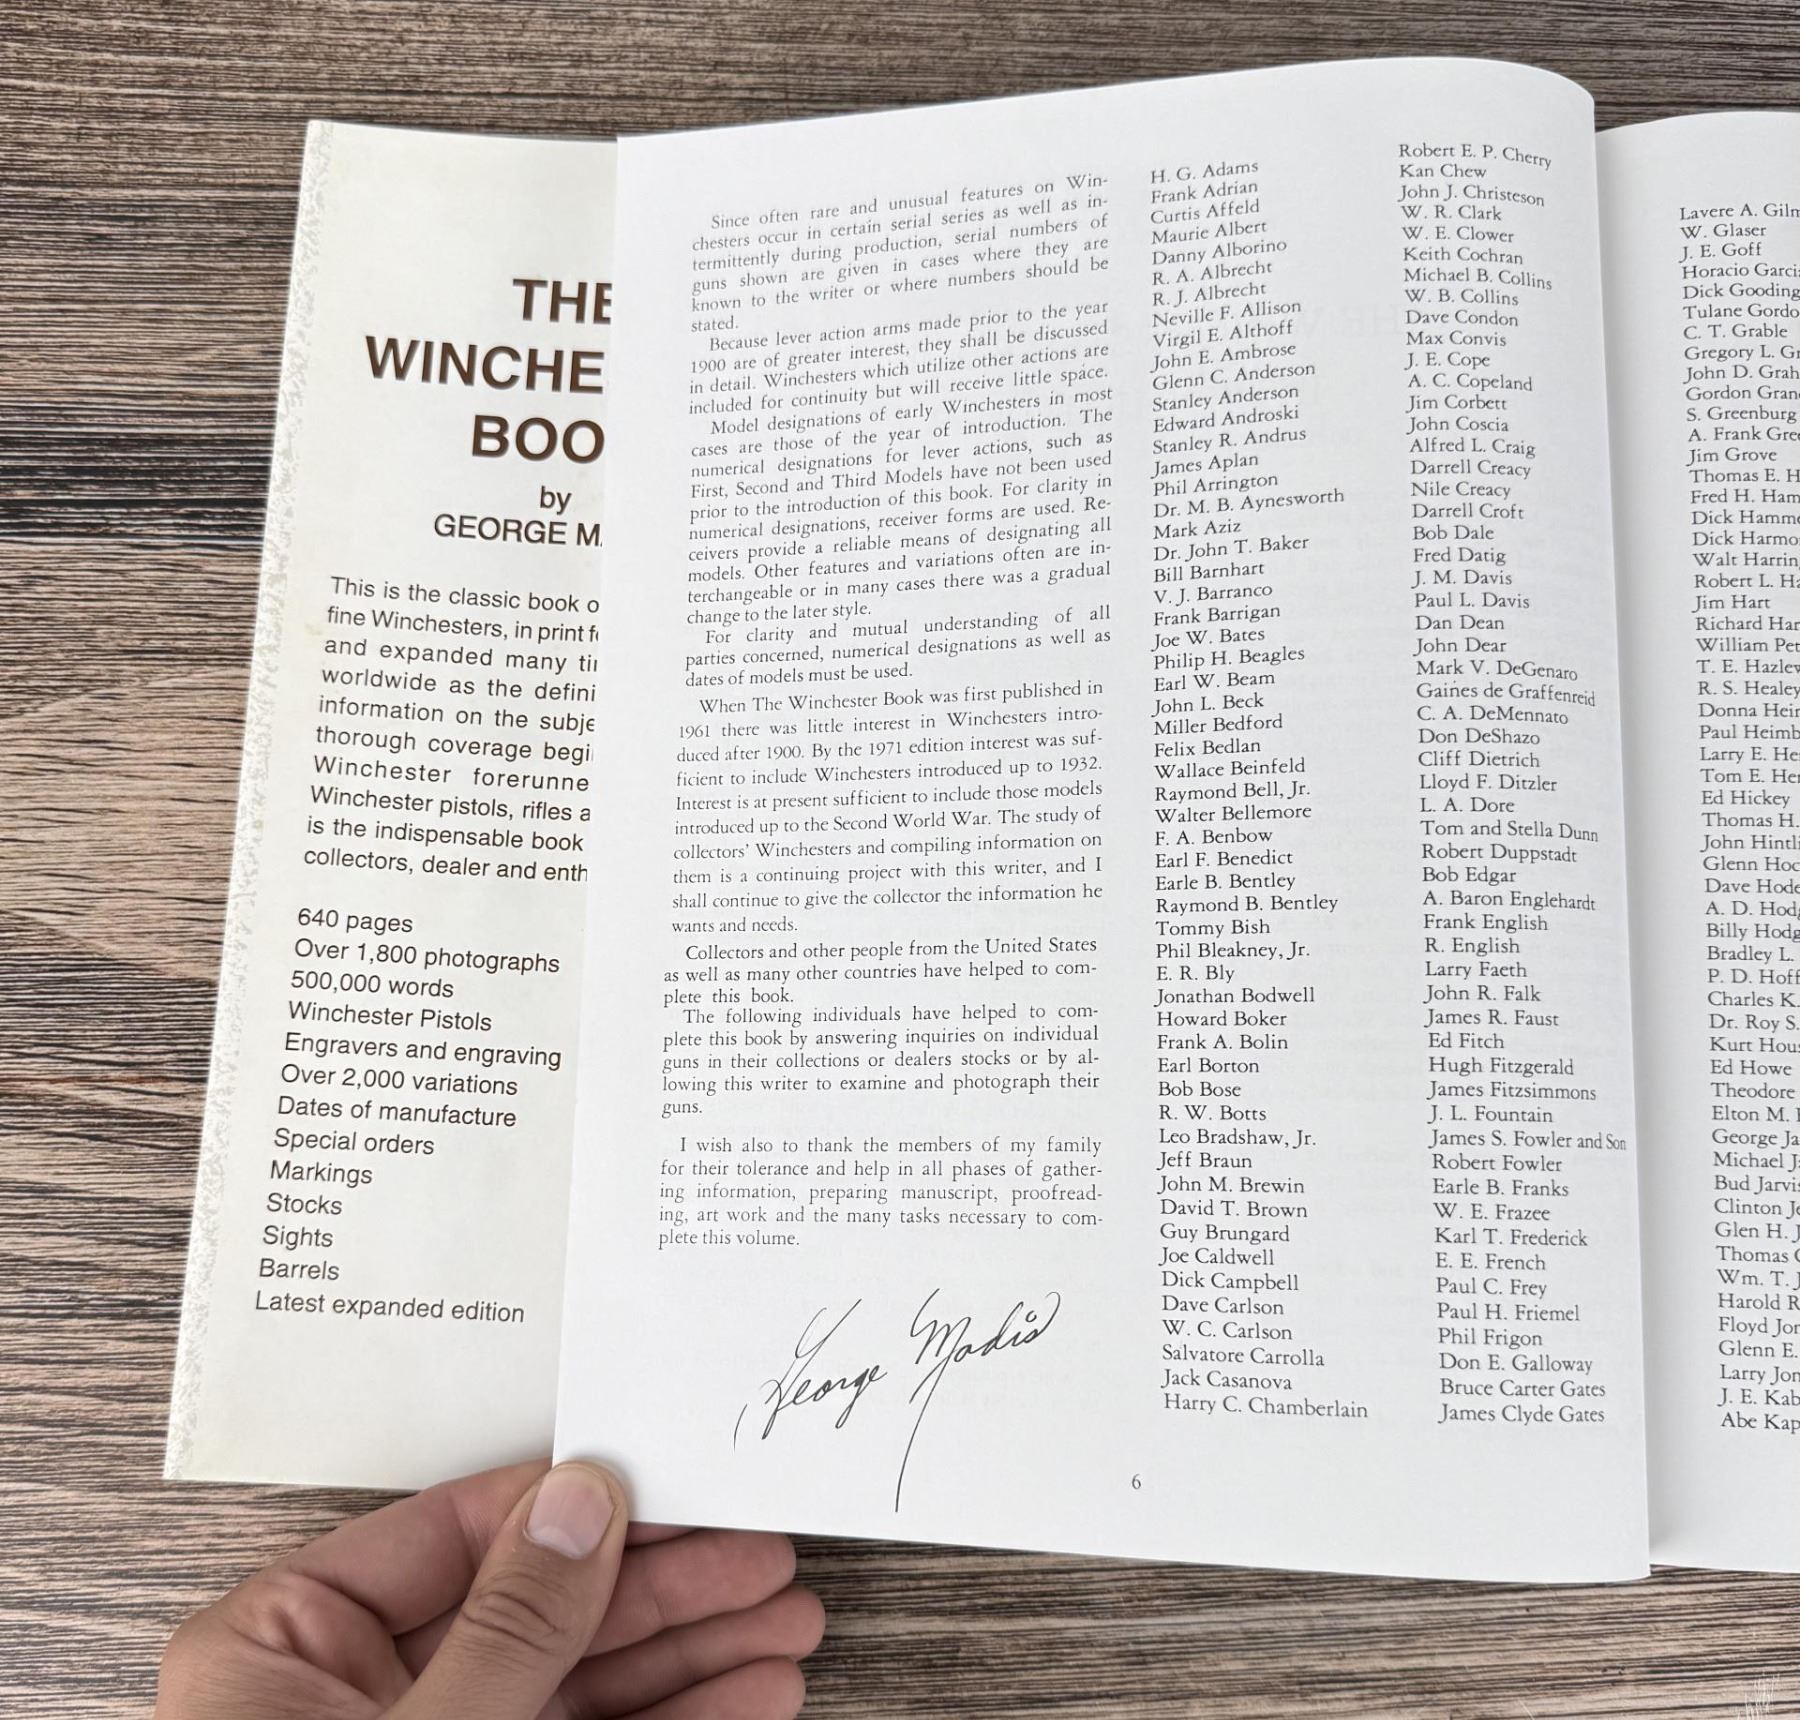 THE
WINCHE
BOO
by
GEORGE M
This is the classic book o
fine Winchesters, in print
and expanded many
worldwide as the defini
information on the subje
thorough coverage begi
Winchester forerunne
Winchester pistols, rifles a
is the indispensable book
collectors, dealer and enth
640 pages
Over 1,800 photographs
500,000 words
Winchester Pistols
Engravers and engraving
Over 2,000 variations
Dates of manufacture
Special orders
Markings
Stocks
Sights
Barrels
Latest expanded edition
Since often rare and unusual features on Win-
chesters occur in certain serial series as well as in-
termittently during production, serial numbers of
guns shown are given in cases where they are
known to the writer or where numbers should be
stated.
Because lever action arms made prior to the year
1900 are of greater interest, they shall be discussed
in detail. Winchesters which utilize other actions are
included for continuity but will receive little space.
Model designations of early Winchesters in most
cases are those of the year of introduction. The
numerical designations for lever actions, such as
First, Second and Third Models have not been used
prior to the introduction of this book. For clarity in
numerical designations, receiver forms are used. Re-
ceivers provide a reliable means of designating all
models. Other features and variations often are in-
terchangeable or in many cases there was a gradual
change to the later style.
For clarity and mutual understanding of all
parties concerned, numerical designations as well as
dates of models must be used.
When The Winchester Book was first published in
1961 there was little interest in Winchesters intro-
duced after 1900. By the 1971 edition interest was suf-
ficient to include Winchesters introduced up to 1932.
Interest is at present sufficient to include those models
introduced up to the Second World War. The study of
collectors' Winchesters and compiling information on
them is a continuing project with this writer, and I
shall continue to give the collector the information he
wants and needs.
Collectors and other people from the United States
as well as many other countries have helped to com-
plete this book.
The following individuals have helped to com-
plete this book by answering inquiries on individual
guns in their collections or dealers stocks or by al-
lowing this writer to examine and photograph their
guns.
I wish also to thank the members of my family
for their tolerance and help in all phases of gather-
ing information, preparing manuscript, proofread-
ing, art work and the many tasks necessary to com-
plete this volume.
George Madis
H. G. Adams
Frank Adrian
Curtis Affeld
Maurie Albert
Danny Alborino
R. A. Albrecht
R. J. Albrecht
Neville F. Allison
Virgil E. Althoff
John E. Ambrose
Glenn C. Anderson
Stanley Anderson
Edward Androski
Stanley R. Andrus
James Aplan
Phil Arrington
Dr. M. B. Aynesworth
Mark Aziz
Dr. John T. Baker
Bill Barnhart
V. J. Barranco
Frank Barrigan
Joe W. Bates
Philip H. Beagles
Earl W. Beam
John L. Beck
Miller Bedford
Felix Bedlan
Wallace Beinfeld
Raymond Bell, Jr.
Walter Bellemore
F. A. Benbow
Earl F. Benedict
Earle B. Bentley
Raymond B. Bentley
Tommy Bish
Phil Bleakney, Jr.
E. R. Bly
Jonathan Bodwell
Howard Boker
Frank A. Bolin
Earl Borton
Bob Bose
R. W. Botts
Leo Bradshaw, Jr.
Jeff Braun
John M. Brewin
David T. Brown
Guy Brungard
Joe Caldwell
Dick Campbell
Dave Carlson
W. C. Carlson
Salvatore Carrolla
Jack Casanova
Harry C. Chamberlain
Robert E. P. Cherry
Kan Chew
John J. Christeson
W. R. Clark
W. E. Clower
Keith Cochran
Michael B. Collins
W. B. Collins
Dave Condon
Max Convis
J. E. Cope
A. C. Copeland
Jim Corbett
John Coscia
Alfred L. Craig
Darrell Creacy
Nile Creacy
Darrell Croft
Bob Dale
Fred Datig
J. M. Davis
Paul L. Davis
Dan Dean
John Dear
Mark V. DeGenaro
Gaines de Graffenreid
C. A. DeMennato
Don DeShazo
Cliff Dietrich
Lloyd F. Ditzler
L. A. Dore
Tom and Stella Dunn
Robert Duppstadt
Bob Edgar
A. Baron Englehardt
Frank English
R. English
Larry Faeth
John R. Falk
James R. Faust
Ed Fitch
Hugh Fitzgerald
James Fitzsimmons
J. L. Fountain
James S. Fowler and Son
Robert Fowler
Earle B. Franks
W. E. Frazee
Karl T. Frederick
E. E. French
Paul C. Frey
Paul H. Friemel
Phil Frigon
Don E. Galloway
Bruce Carter Gates
James Clyde Gates
6
Lavere A. Giln
W. Glaser
J. E. Goff
Horacio Garci
Dick Gooding
Tulane Gordo
C. T. Grable
Gregory L. Gr
John D. Grah
Gordon Gran
S. Greenburg
A. Frank Gre
Jim Grove
Thomas E. H
Fred H. Ham
Dick Hamme
Dick Harmo
Walt Harrin
Robert L. Ha
Jim Hart
Richard Har
William Pet
T. E. Hazlew
R. S. Healey
Donna Hein
Paul Heimb
Larry E. He
Tom E. He
Ed Hickey
Thomas H.
John Hintli
Glenn Hoc
Dave Hode
A. D. Hodg
Billy Hodg
Bradley L.
P. D. Hoff
Charles K.
Dr. Roy S.
Kurt Hous
Ed Howe
Theodore
Elton M.
George Ja
Michael J
Bud Jarvis
Clinton Je
Glen H. J
Thomas
Wm. T. J
Harold R
Floyd Jor
Glenn E.
Larry Jon
J. E. Kab
Abe Kap